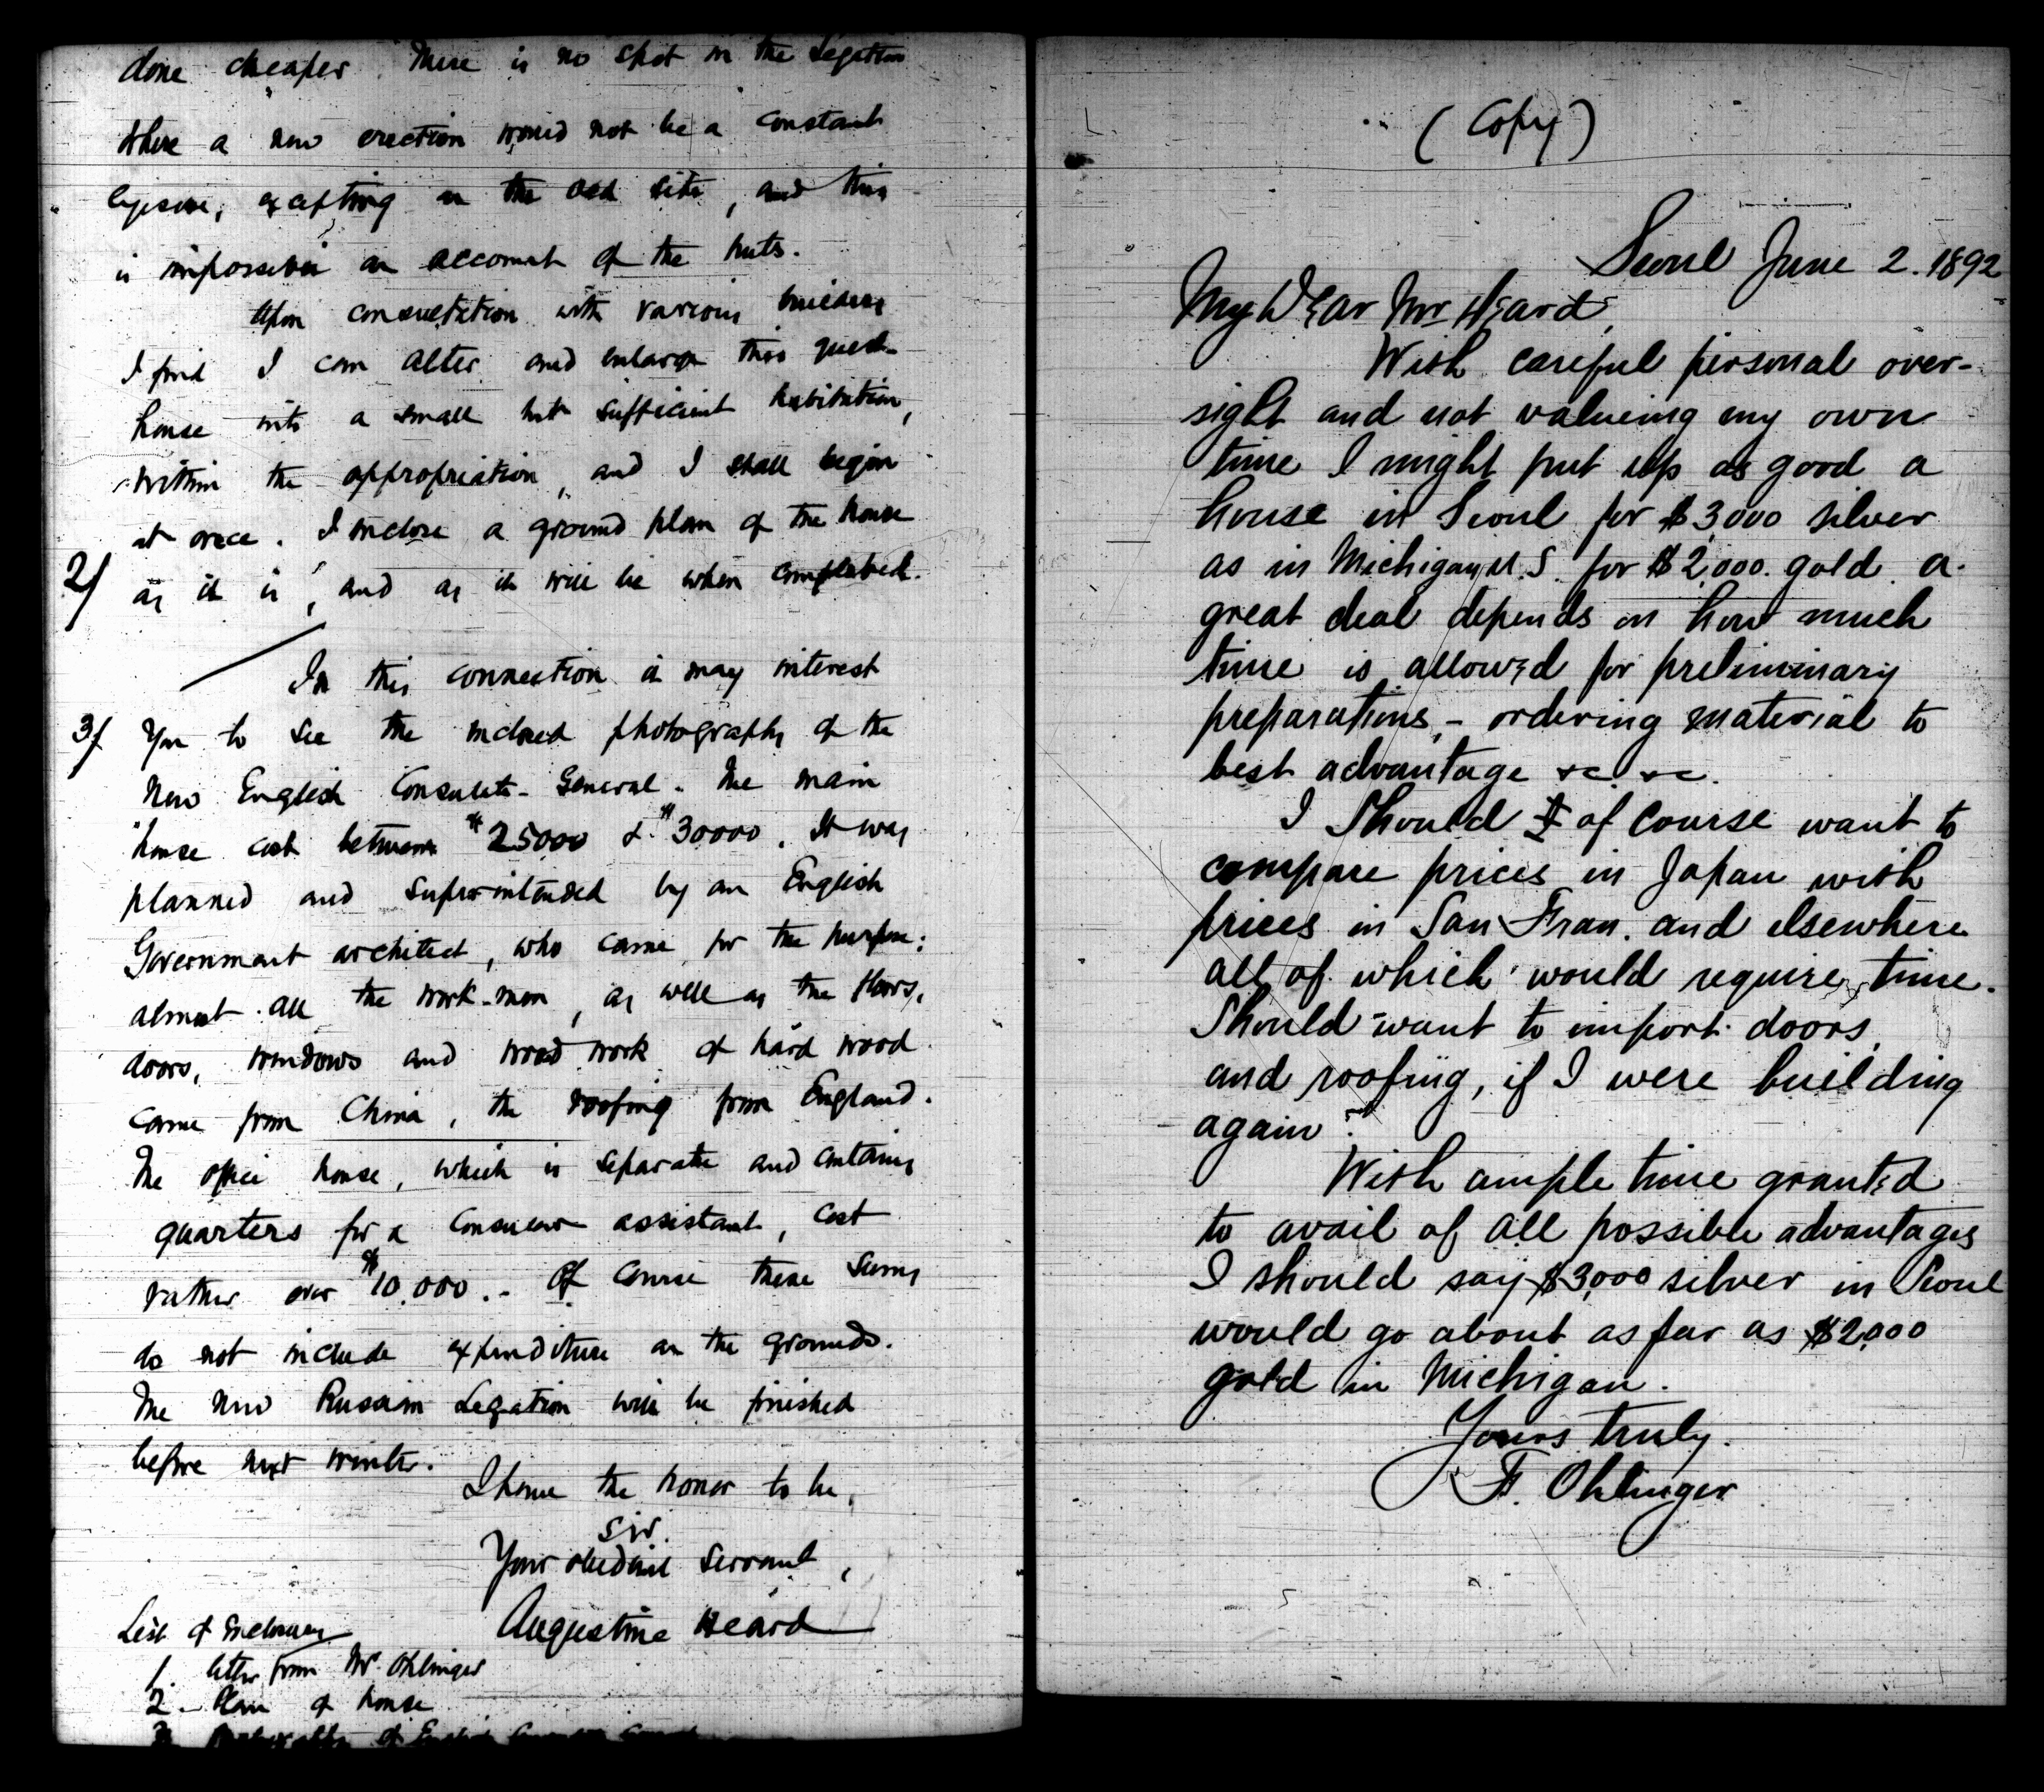 done cheaper. There is no spot in the Legation
where a new erection would not be a constant
eyesore, excepting on the old site, and this
is impossible on account of the huts.
Upon consultation with various builders
I find I can alter and enlarge this guest-
house into a small but sufficient habitation,
within the appropriation, and I shall begin
at once. I inclose a ground plan of the house
2/ as it is, and as it will be when completed.
In this connection it may interest
3/ you to see the inclosed photographs of the
new English Consulate-General. The main
house cost between $25000 & $30000. It was
planned and superintended by an English
Government architect, who came for the purpose;
almost all the work-men, as well as the floors,
doors, windows and wood work of hard wood
came from China, the roofing from England.
The office house, which is separate and contains
quarters for a Consular assistant, cost
rather over $10,000. - Of course these sums
do not include expenditure on the grounds.
The new Russian Legation will be finished
before next winter.
I have the honor to be,
Sir.
Your obedient Servant,
Augustine Heard
List of Enclosures
1. letter from Mr. Ohlinger
2. Plan of house
3 Photographs of English
(Copy)
Seoul June 2. 1892
My Dear Mr Heard,
With careful personal over-
sight and not valueing my own
time I might put up as good a
house in Seoul for $3,000 silver
as in Michigan, U.S. for $2,000. gold. a
great deal depends on how much
time is allowed for preliminary
preparations, - ordering material to
best advantage &c &c.
I Should I of course want to
compare prices in Japan with
prices in San Fran. and elsewhere
all of which would require time.
Should want to import doors,
and roofing, if I were building
again.
With ample time granted
to avail of all possible advantages
I should say $3,000 silver in Seoul
would go about as far as $2,000
gold in Michigan.
Yours truly.
F. Ohlinger